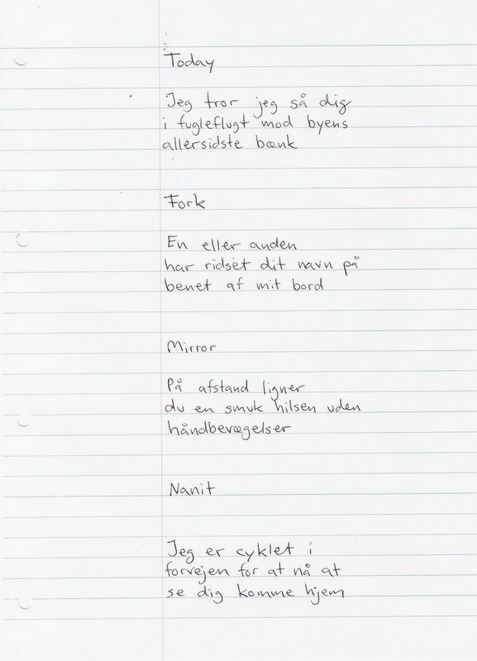 Today
Jeg tror jeg så dig
i fugleflugt mod byens
allersidste bænk
Fork
En eller anden
har ridset dit navn på
benet af mit bord
Mirror
På afstand ligner
du en smuk hilsen uden
håndbevægelser
Nanit
Jeg er cyklet i
forvejen for at nå at
se dig komme hjem